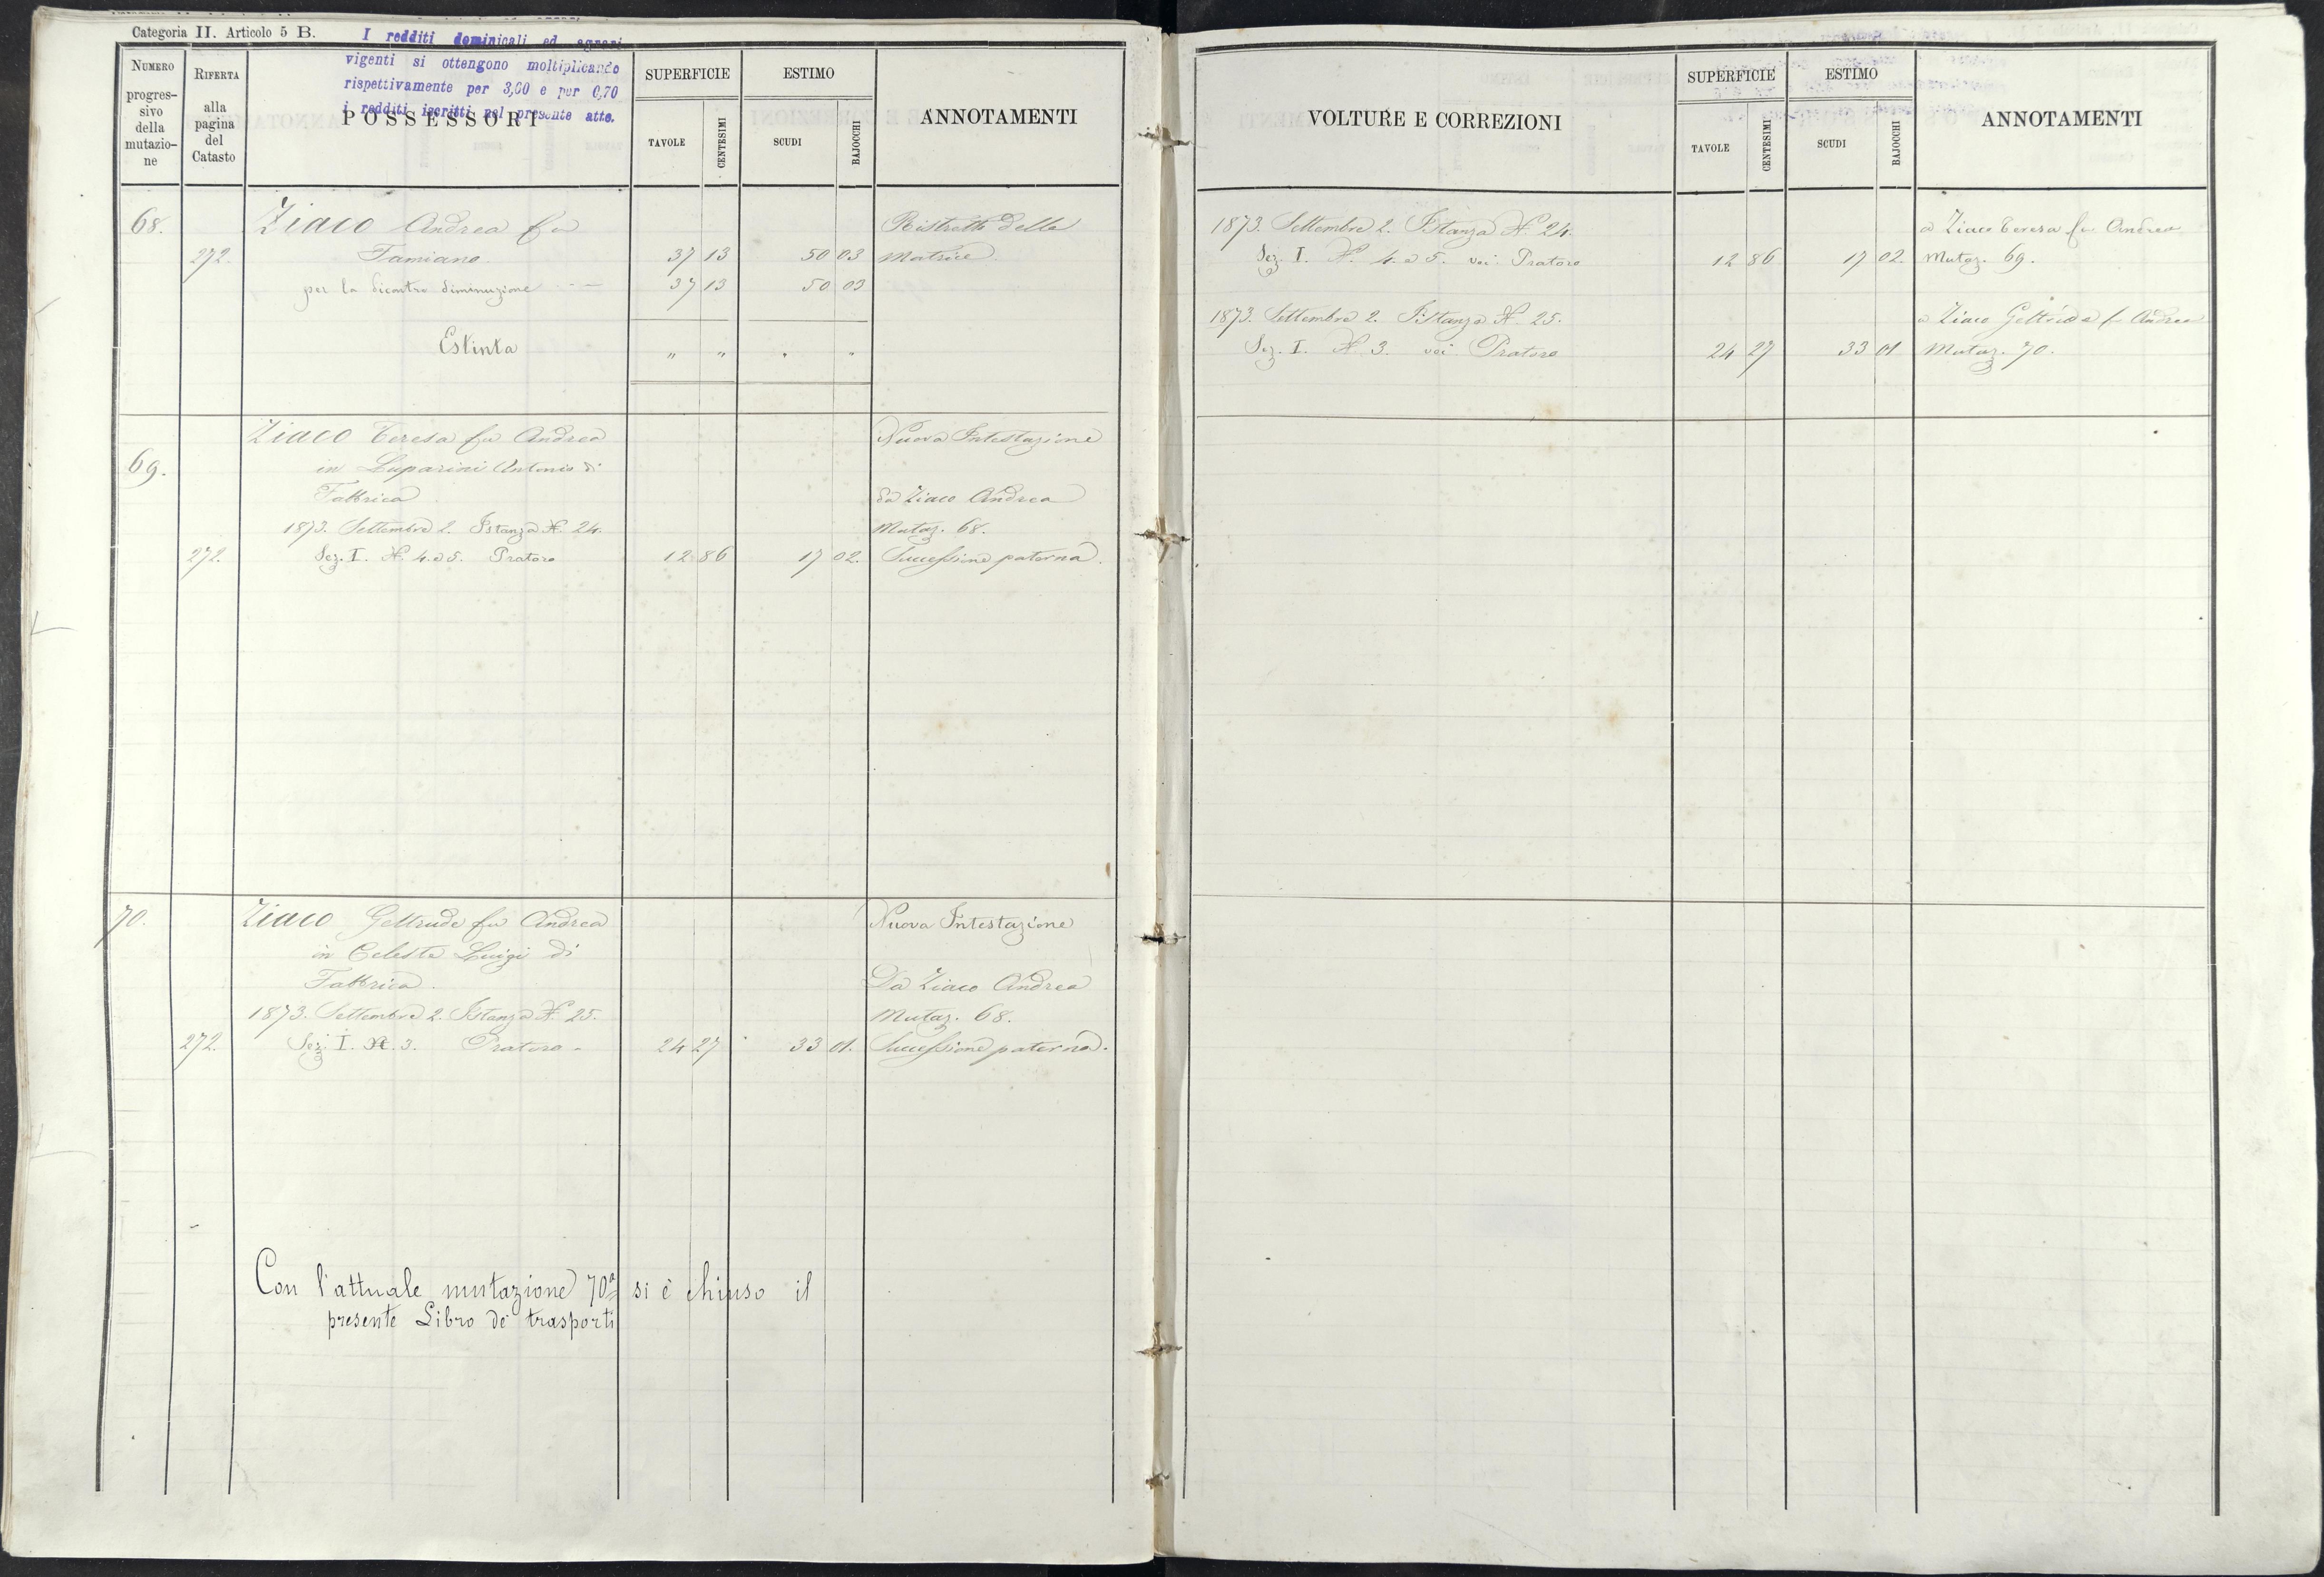 Categoria II. Articolo 5 B.
I redditi dominicali ed agrari
vigenti si ottengono moltiplicando
rispettivamente per 3,00 e per 0,70
i redditi iscritti nel presente atto.
NUMERO
progres-
sivo
della
mutazio-
ne
RIFERTA
alla
pagina
del
Catasto
POSSESSORI
SUPERFICIE
TAVOLE
CENTESIMI
ESTIMO
SCUDI
BAJOCCHI
ANNOTAMENTI
68. Ziaco Andrea fu Ristretto della
272. Famiano 37 13 50 03 Matrice.
per la dicontro diminuzione 37 13 50 03
Estinta " " " "
Ziaco Teresa fu Andrea Nuova Intestazione
69. in Luparini Antonio di
Fabbrica da Ziaco Andrea
1873. Settembre 2. Istanza N. 24. Mutaz. 68.
272. Sez. I. N. 4. a 5. Pratoro 12 86 17 02. Successione paterna.
70. Ziaco Geltrude fu Andrea Nuova Intestazione
in Celeste Luigi di
Fabbrica. Da Ziaco Andrea
1873. Settembre 2. Istanza N. 25. Mutaz. 68.
272. Sez. I. N. 3. Pratoro 24 27 33 01. Successione paterna.
Con l'attuale mutazione 70ª si è chiuso il
presente Libro de' trasporti
VOLTURE E CORREZIONI
SUPERFICIE
TAVOLE
CENTESIMI
ESTIMO
SCUDI
BAJOCCHI
ANNOTAMENTI
1873. Settembre 2. Istanza N. 24. a Ziaco Teresa fu Andrea
Sez. I. N. 4. a 5. voc. Pratoro 12 86 17 02. Mutaz. 69.
1873. Settembre 2. Istanza N. 25. a Ziaco Geltrude fu Andrea
Sez. I. N. 3. voc. Pratoro 24 27 33 01 Mutaz. 70.